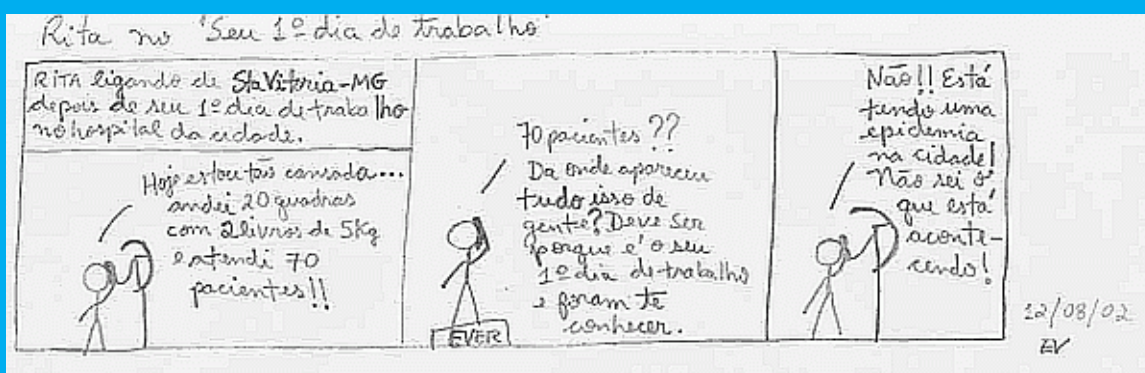 Rita no 'Seu 1º dia de trabalho'
RITA ligando de Sta Vitoria-MG
depois de seu 1º dia de trabalho
no hospital da cidade.
Hoje estou tão cansada...
andei 20 quadras
com 2 livros de 5Kg
e atendi 70
pacientes!!
70 pacientes ??
Da onde apareceu
tudo isso de
gente? Deve ser
porque é o seu
1º dia de trabalho
e foram te
conhecer.
EVER
Não!! Está
tendo uma
epidemia
na cidade!
Não sei o
que está
aconte-
cendo!
12/08/02
EV